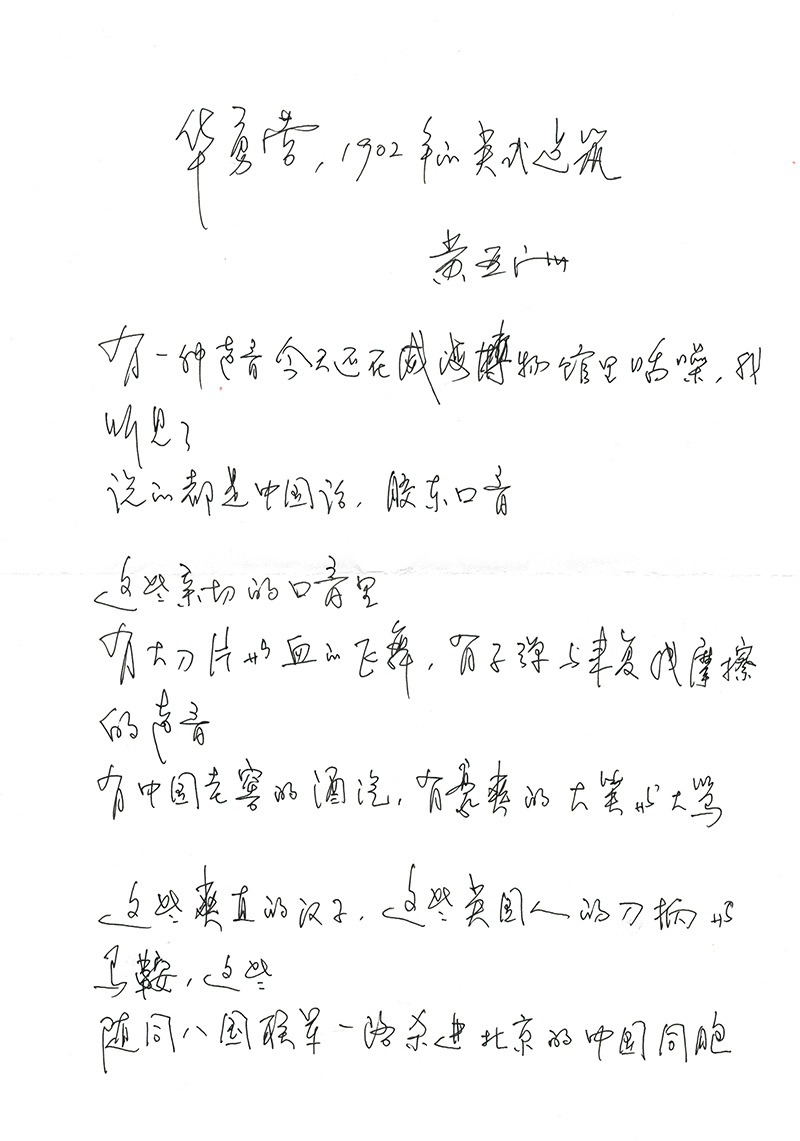 华勇营，1902年的英式建筑
黄亚洲
有一种声音今天还在威海博物馆里喧噪，我
听见了
说的都是中国话，胶东口音
这些亲切的口音里
有大刀片与血的飞舞，有子弹与来复线摩擦
的声音
有中国老窖的酒气，有豪爽的大笑与大骂
这些爽直的汉子，这些英国人的刀柄与
马鞍，这些
随同八国联军一路杀进北京的中国同胞